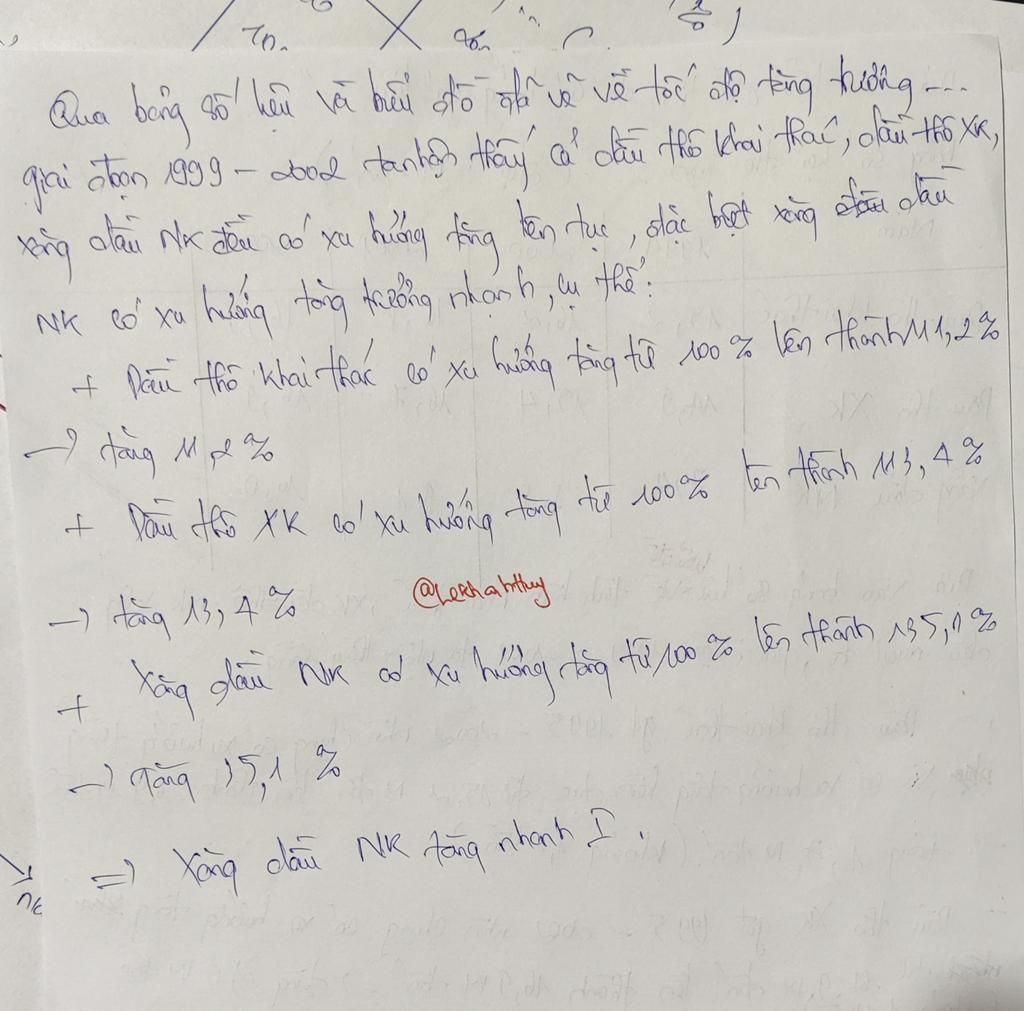 Qua bảng số liệu và biểu đồ đã vẽ về tốc độ tăng trưởng ...
giai đoạn 1999 - 2002 ta nhận thấy cả dầu thô khai thác, dầu thô XK,
xăng dầu NK đều có xu hướng tăng liên tục, đặc biệt xăng dầu
NK có xu hướng tăng trưởng nhanh, cụ thể:
+ Dầu thô khai thác có xu hướng tăng từ 100% lên thành 111,2%
→ tăng 11,2%
+ Dầu thô XK có xu hướng tăng từ 100% lên thành 113,4%
→ tăng 13,4%
@Lekhahthuy
+ Xăng dầu NK có xu hướng tăng từ 100% lên thành 135,1%
→ tăng 35,1%
=> Xăng dầu NK tăng nhanh I.